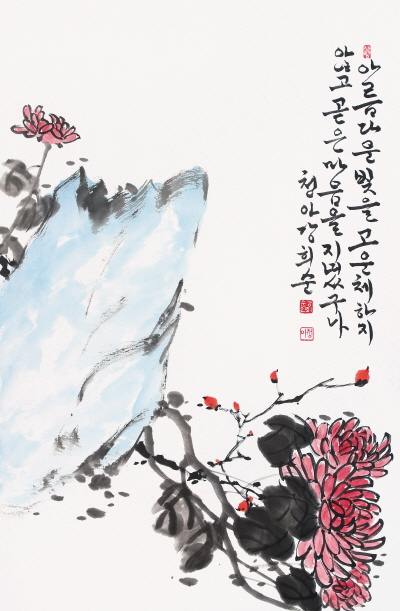 아름다운 빛을 고운체 하지
않고 곧은 마음을 지녔구나
청아 강희순